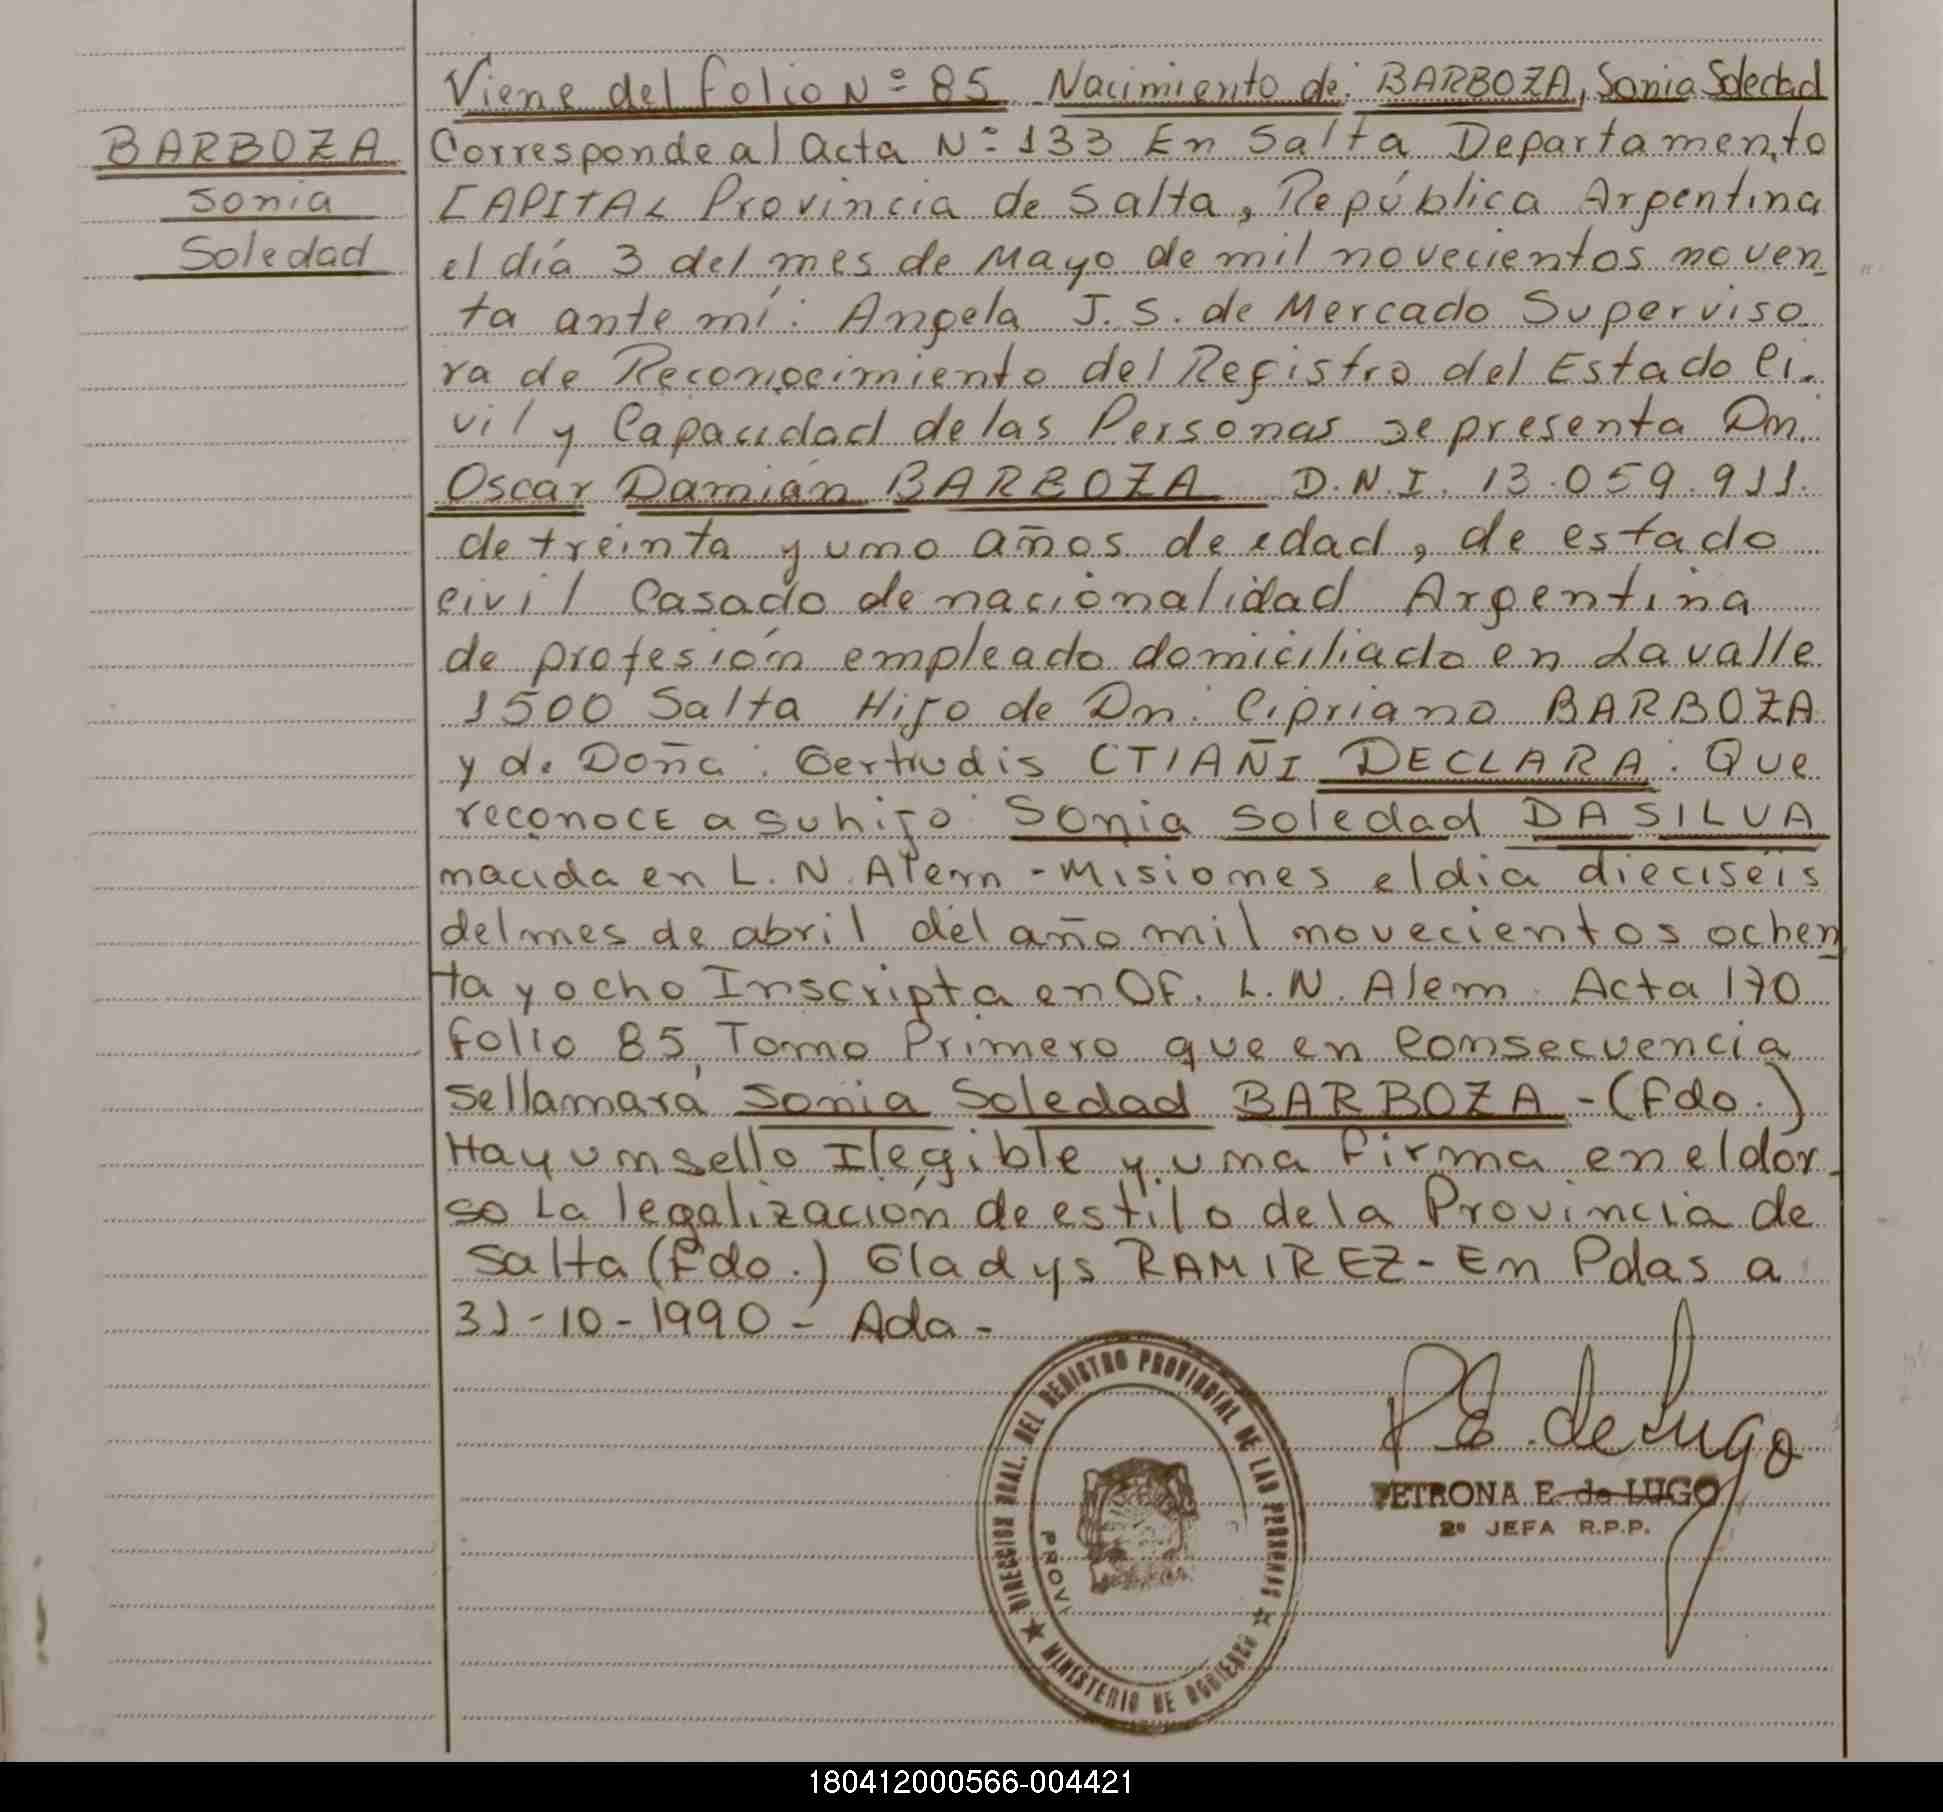 Viene del folio Nº 85 Nacimiento de: BARBOZA, Sonia Soledad
BARBOZA
Sonia
Soledad
Corresponde al acta Nº 133 En Salta Departamento
CAPITAL Provincia de Salta, República Argentina
el día 3 del mes de Mayo de mil novecientos noven
ta ante mí: Angela J. S. de Mercado Superviso
ra de Reconocimiento del Registro del Estado Ci-
vil y Capacidad de las Personas se presenta Dn.
Oscar Damián BARBOZA D.N.I. 13.059.911.
de treinta y uno años de edad, de estado
civil Casado de nacionalidad Argentina
de profesión empleado domiciliado en Lavalle
1500 Salta Hijo de Dn. Cipriano BARBOZA
y de Doña: Gertrudis CTIAÑI DECLARA: Que
reconoce a su hijo Sonia Soledad DA SILVA
nacida en L. N. Alem - Misiones el día dieciseis
del mes de abril del año mil novecientos ochen
ta y ocho Inscripta en Of. L. N. Alem. Acta 170
folio 85, Tomo Primero que en consecuencia
se llamará Sonia Soledad BARBOZA - (Fdo.)
Hay un sello Ilegible y una firma en el dor-
so La legalización de estilo de la Provincia de
Salta (Fdo.) Gladys RAMIREZ - En Pdas a
31-10-1990 - Ada -
DIRECCION GRAL. DEL REGISTRO PROVINCIAL DE LAS PERSONAS
MINISTERIO DE GOBIERNO
P. E. de Lugo
PETRONA E. de LUGO
2º JEFA R.P.P.
180412000566-004421